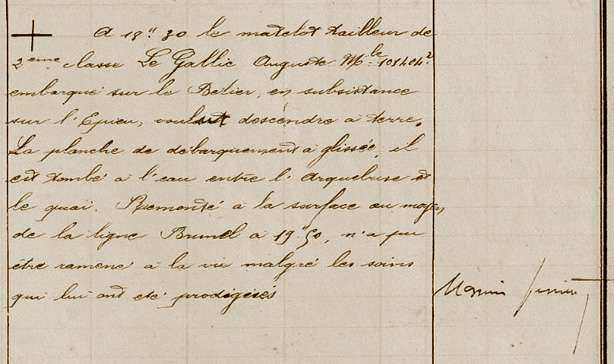 A 18h 30 le matelot tailleur de
2ème classe Le Gallic Auguste Mle 101404²
embarqué sur le Bélier, en subsistance
sur l'Epieu, voulut descendre à terre.
La planche de débarquement a glissée, il
est tombé à l'eau entre l'Arquebuse et
le quai. Remonté à la surface au moyen
de la ligne Brunel à 19h50, n'a pu
être ramené à la vie malgré les soins
qui lui ont été prodigués